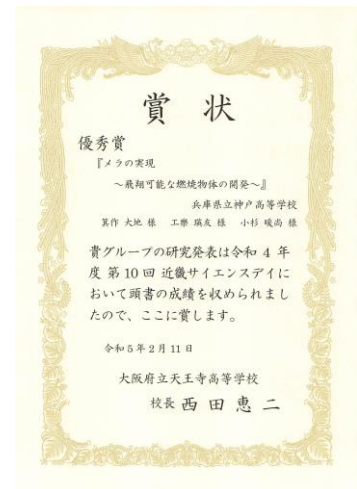 賞状
優秀賞
『メラの実現
～飛翔可能な燃焼物体の開発～』
兵庫県立神戸高等学校
箕作 大地 様 工樂 瑞友 様 小杉 暖尚 様
貴グループの研究発表は令和 4 年
度 第 10 回 近畿サイエンスデイに
おいて頭書の成績を収められまし
たので、ここに賞します。
令和 5 年 2 月 11 日
大阪府立天王寺高等学校
校長 西田恵二